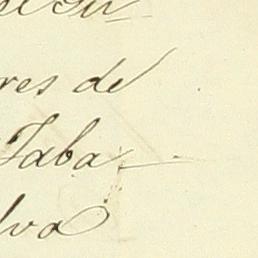 res de
Taba
lva